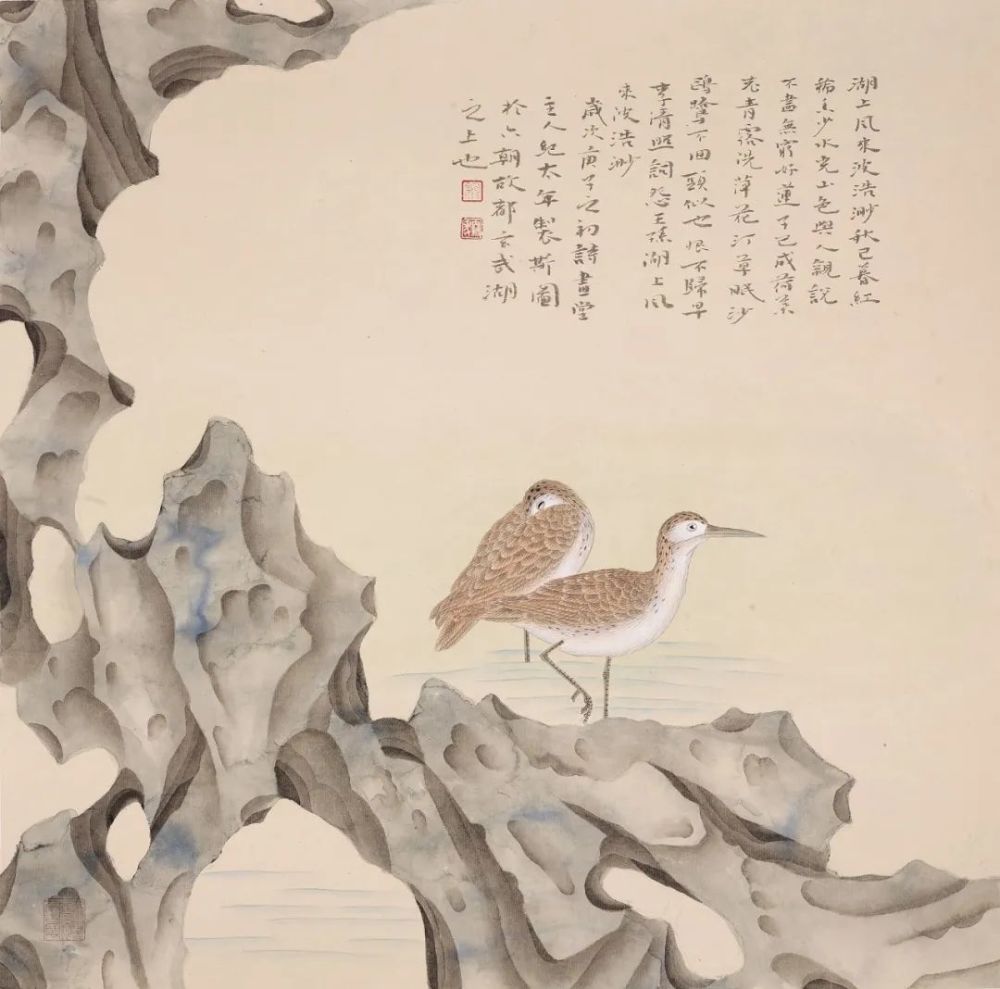 湖上風來波浩渺秋已暮紅
稀香少水光山色與人親說
不盡無窮好蓮子已成荷葉
老青露洗萍花汀草眠沙
鷗鷺不回頭似也恨不歸早
李清照詞怨王孫湖上風
來波浩渺
歲次庚子之初詩畫堂
主人紀太年製斯圖
於六朝故都玄武湖
之上也